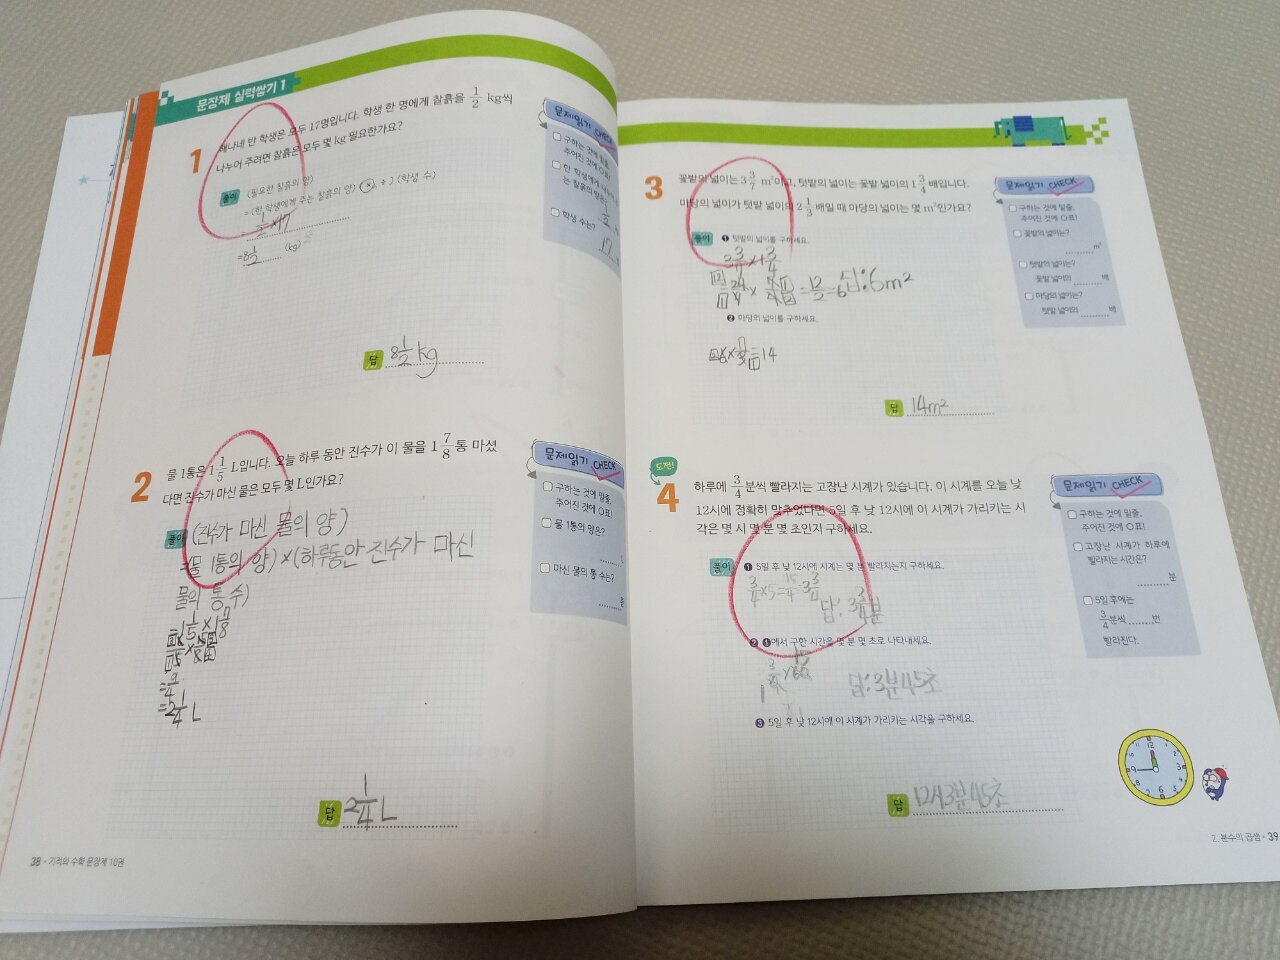 문장제 실력쌓기 1
1
해나네 반 학생은 모두 17명입니다. 학생 한 명에게 찰흙을 1/2 kg씩
나누어 주려면 찰흙은 모두 몇 kg 필요한가요?
풀이
(필요한 찰흙의 양)
= (한 학생에게 주는 찰흙의 양) ×, ÷ ) (학생 수)
= 1/2 × 17
= 8 1/2 (kg)
답 8 1/2 kg
문제읽기 CHECK
구하는 것에 밑줄,
주어진 것에 ○표!
학생 수는?
17
2
물 1통은 1 1/5 L입니다. 오늘 하루 동안 진수가 이 물을 1 7/8 통 마셨
다면 진수가 마신 물은 모두 몇 L인가요?
풀이 (진수가 마신 물의 양)
=(물 1통의 양)×(하루동안 진수가 마신
물의 통 수)
=1 1/5 × 1 7/8
= 9/4
= 2 1/4 L
답 2 1/4 L
문제읽기 CHECK
구하는 것에 밑줄,
주어진 것에 ○표!
물 1통의 양은?
마신 물의 통 수는?
통
38 • 기적의 수학 문장제 10권
3
꽃밭의 넓이는 3 3/7 m²이고, 텃밭의 넓이는 꽃밭 넓이의 1 3/4 배입니다.
마당의 넓이가 텃밭 넓이의 2 1/3 배일 때 마당의 넓이는 몇 m²인가요?
풀이
❶ 텃밭의 넓이를 구하세요.
= 12/2 = 6 답:6m²
❷ 마당의 넓이를 구하세요.
=14
답 14m²
문제읽기 CHECK
구하는 것에 밑줄,
주어진 것에 ○표!
꽃밭의 넓이는?
m²
텃밭의 넓이는?
꽃밭 넓이의 배
마당의 넓이는?
텃밭 넓이의 배
도전!
4
하루에 3/4 분씩 빨라지는 고장난 시계가 있습니다. 이 시계를 오늘 낮
12시에 정확히 맞추었다면 5일 후 낮 12시에 이 시계가 가리키는 시
각은 몇 시 몇 분 몇 초인지 구하세요.
풀이
❶ 5일 후 낮 12시에 시계는 몇 분 빨라지는지 구하세요.
3/4 × 5 = 15/4 = 3 3/4
답: 3 3/4 분
❷ ❶에서 구한 시간을 몇 분 몇 초로 나타내세요.
답: 3분45초
❸ 5일 후 낮 12시에 이 시계가 가리키는 시각을 구하세요.
답 12시3분45초
문제읽기 CHECK
구하는 것에 밑줄,
주어진 것에 ○표!
고장난 시계가 하루에
빨라지는 시간은?
분
5일 후에는
3/4 분씩 번
빨라진다.
2. 분수의 곱셈 • 39